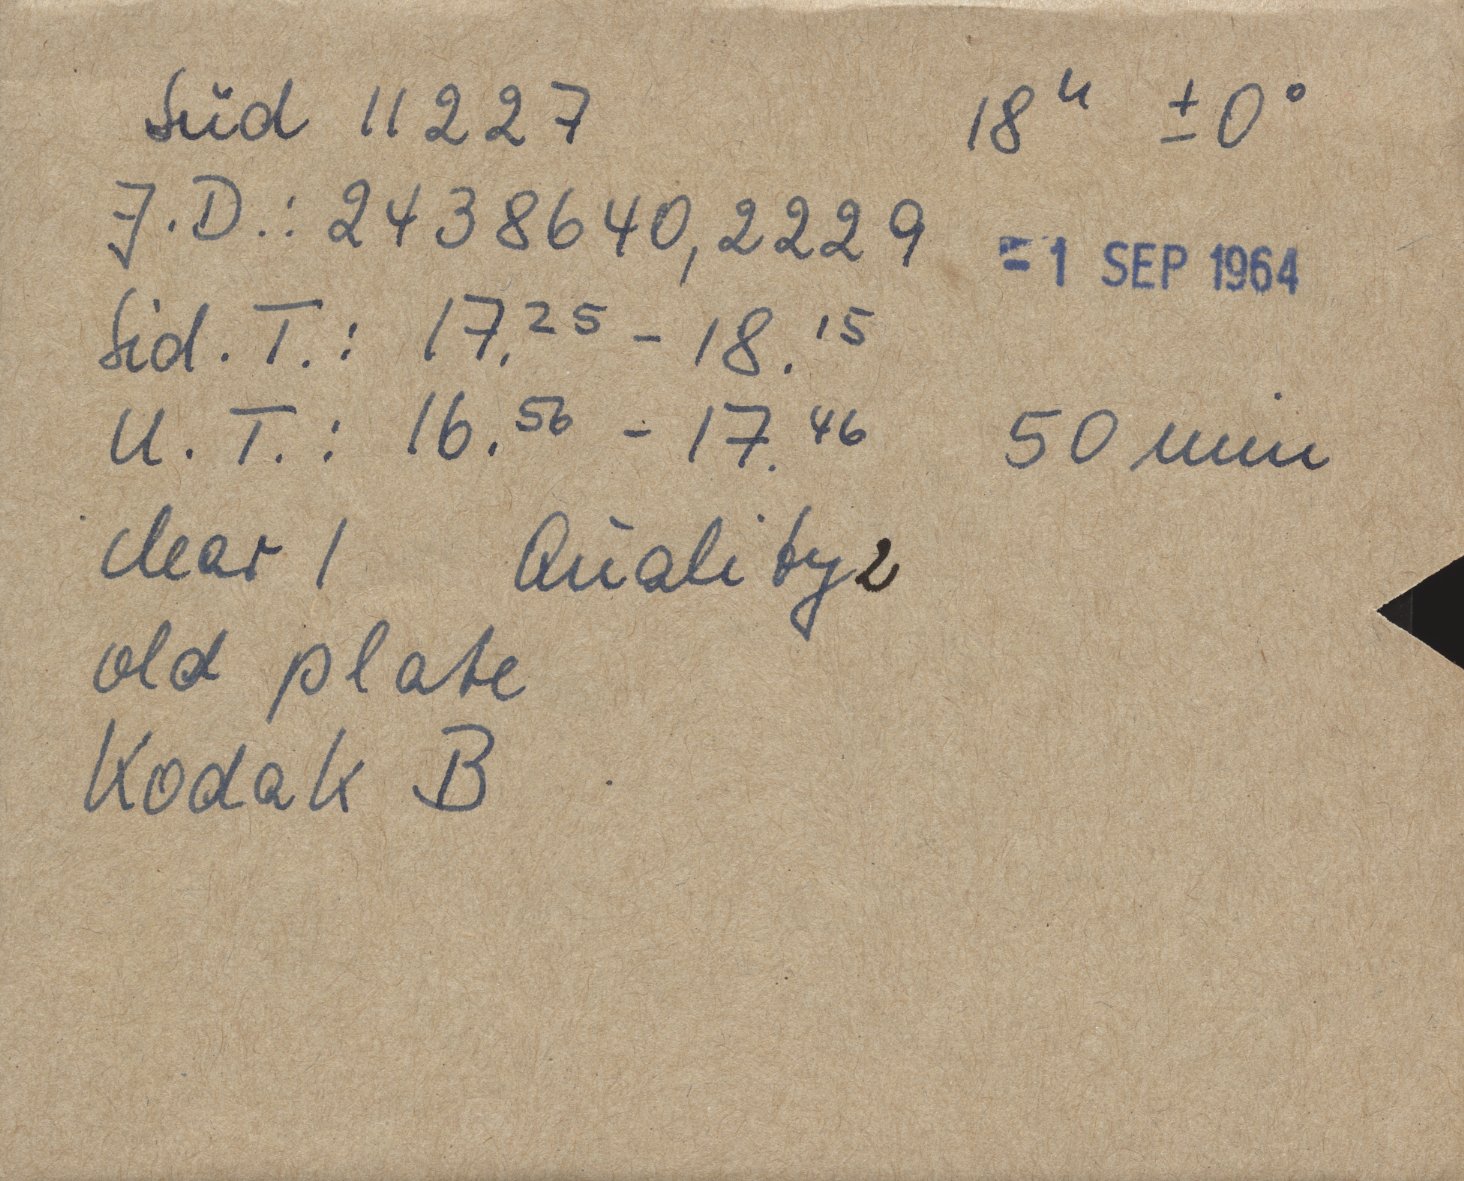 Süd 11227 18ʰ ±0°
J.D.: 2438640,2229
= 1 SEP 1964
Sid. T.: 17.²⁵ - 18.¹⁵
U. T.: 16.⁵⁶ - 17.⁴⁶ 50 min
clear 1 Quality 2
old plate
Kodak B